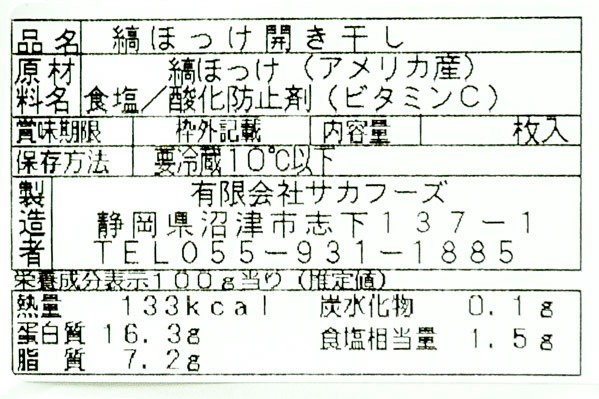 品名 縞ほっけ開き干し
原材料名 縞ほっけ（アメリカ産）
食塩／酸化防止剤（ビタミンC）
賞味期限 枠外記載 内容量 枚入
保存方法 要冷蔵10℃以下
製造者 有限会社サカフーズ
静岡県沼津市志下137-1
TEL055-931-1885
栄養成分表示100g当り（推定値）
熱量 133kcal 炭水化物 0.1g
蛋白質 16.3g 食塩相当量 1.5g
脂質 7.2g